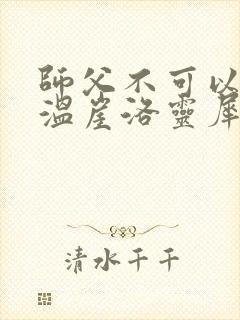 師父不可以
溫崖洛靈犀
清水千千